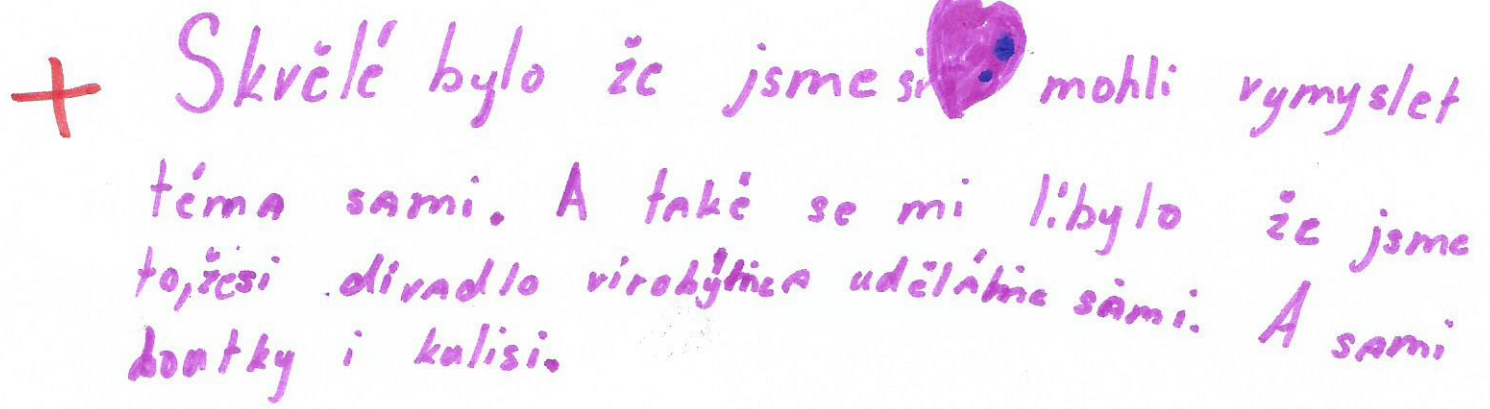 + Skvělé bylo že jsme si mohli vymyslet
téma sami. A také se mi líbylo že jsme
to,žesi divadlo virobýmea uděláme sami. A sami
loutky i kulisi.